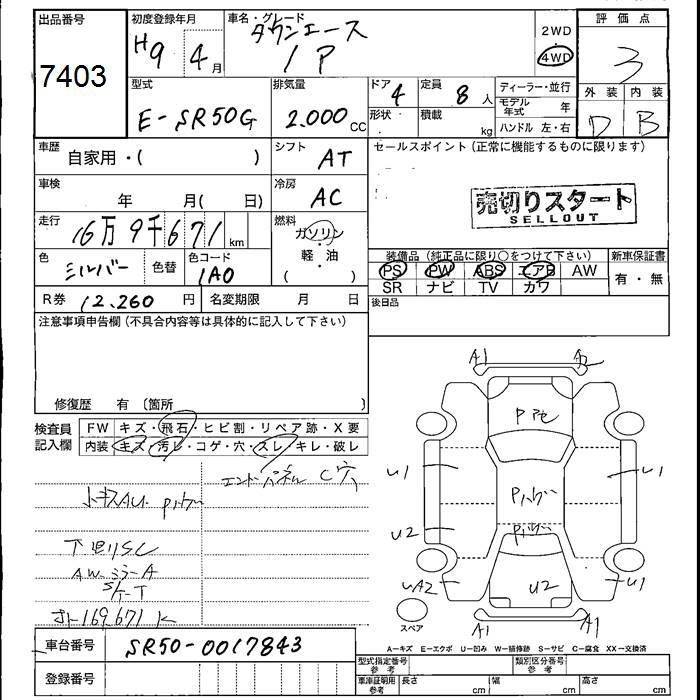 出品番号
7403
初度登録年月
H9 4月
車名・グレード
タウンエース
1P
2WD
4WD
評価点
3
外装 内装
D B
型式
E-SR50G
排気量
2.000cc
ドア 4
形状
定員 8人
積載 kg
ディーラー・並行
モデル年式 年
ハンドル 左・右
車歴
自家用・( )
シフト AT
セールスポイント(正常に機能するものに限ります)
売切りスタート
SELLOUT
車検
年 月( 日)
冷房 AC
走行
16万9千671km
燃料
ガソリン
軽・油
( )
色
シルバー
色替
色コード
1A0
R券 12,260円
名変期限 月 日
装備品(純正品に限り○をつけて下さい)
PS PW ABS エアB AW
SR ナビ TV カワ
新車保証書
有・無
後日品
注意事項申告欄(不具合内容等は具体的に記入して下さい)
修復歴 有 〔箇所 〕
検査員記入欄
FW キズ・飛石・ヒビ割・リペア跡・X要
内装 キズ・汚レ・コゲ・穴・スレ・キレ・破レ
エンドパネル C穴
AWミラーA
169,671K
A1 A2
Pアセ
U1 U1
U2
UA2 U2 U1
A1 A1
スペア
A-キズ E-エクボ U-凹み W-補修跡 S-サビ C-腐食 XX-交換済
車台番号 SR50-0017843
登録番号
型式指定番号参考
類別区分番号参考
車庫証明用参考 長さ cm 幅 cm 高さ cm